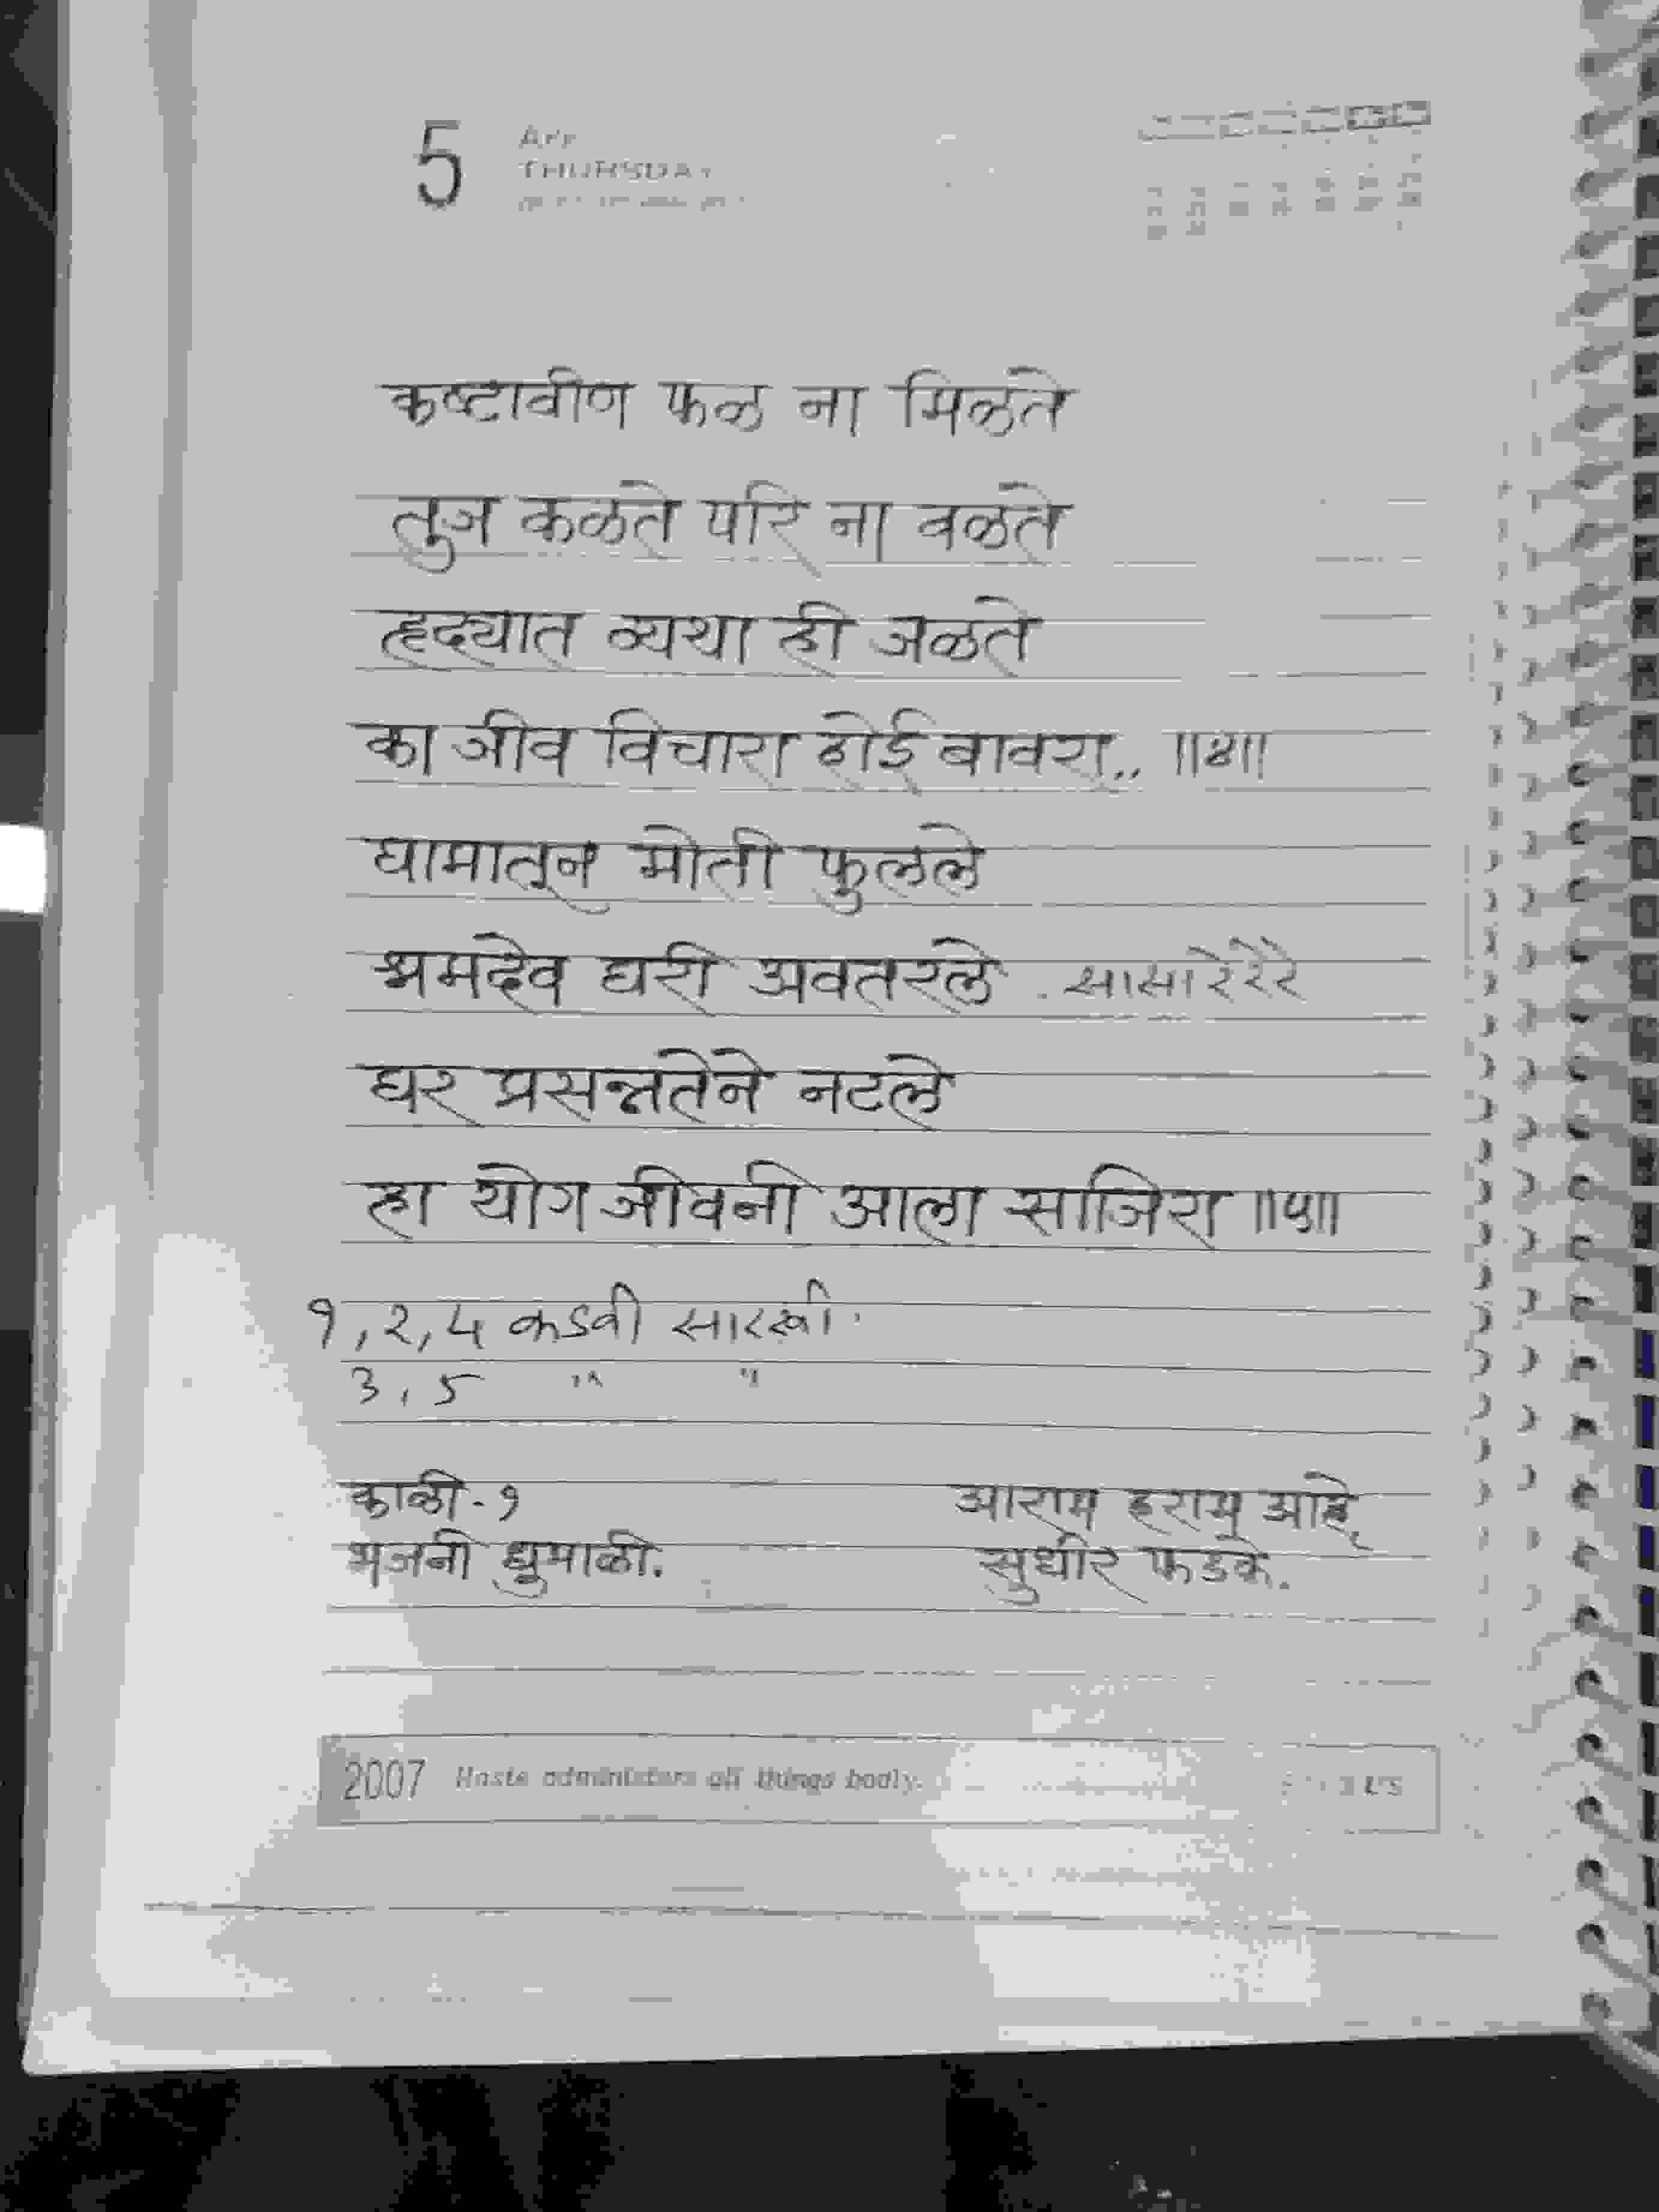 5 Apr
THURSDAY
कष्टावीण फळ ना मिळते
तुज कळते परि ना वळते
हृदयात व्यथा ही जळते
का जीव विचारा होई बावरा.. ॥४॥
घामातून मोती फुलले
श्रमदेव घरी अवतरले . सासारेरेरे
घर प्रसन्नतेने नटले
हा योग जीवनी आला साजिरा ॥५॥
१, २, 4 कडवी सारखी.
3, 5 " "
काळी - १ आराम हराम आहे,
भजनी धुमाळी. सुधीर फडके.
2007 Haste administers all things badly.